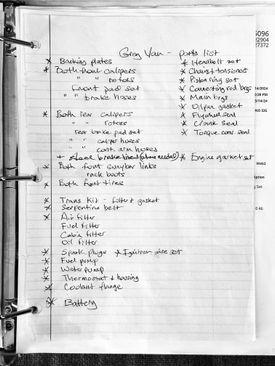 Grey Van - parts list
* Backing plates
* Both front calipers
" " rotors
front pad set
* " " brake hoses
* Both rear calipers
" " rotors
rear brake pad set
" " caliper hoses
" " hoses
+
* Both front swaybar links
rack boots
* Both front tires
* Trans Kit - filter & gasket
* Serpentine belt
* Air filter
Fuel filter
Cabin filter
Oil filter
* Spark plugs * Ignition wire set
* Fuel pump
* Water pump
* Thermostat & housing
* Coolant flange
* Battery
* Headbolt set
* Chain tensioner
* Piston ring set
* Connecting rod brgs
* Main brgs
* Oil pan gasket
* Flywheel seal
* Crank seal
* Torque conv seal
* Engine gasket set
5096
2904
27372